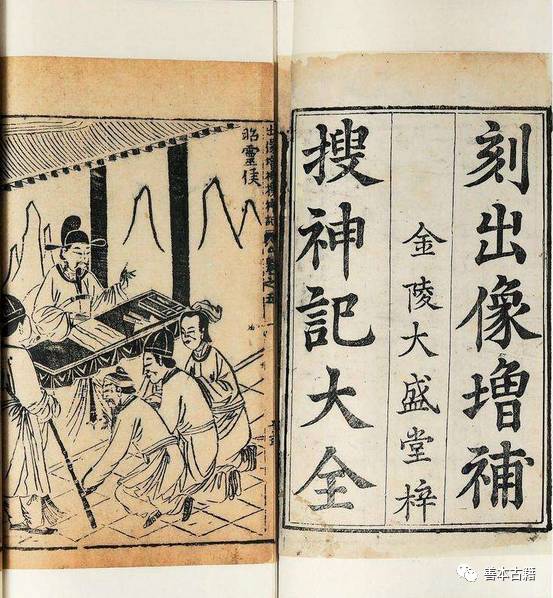 刻出像增補
金陵大盛堂梓
搜神記大全
昭靈侯
出像增補搜神記
卷之五
善本古籍